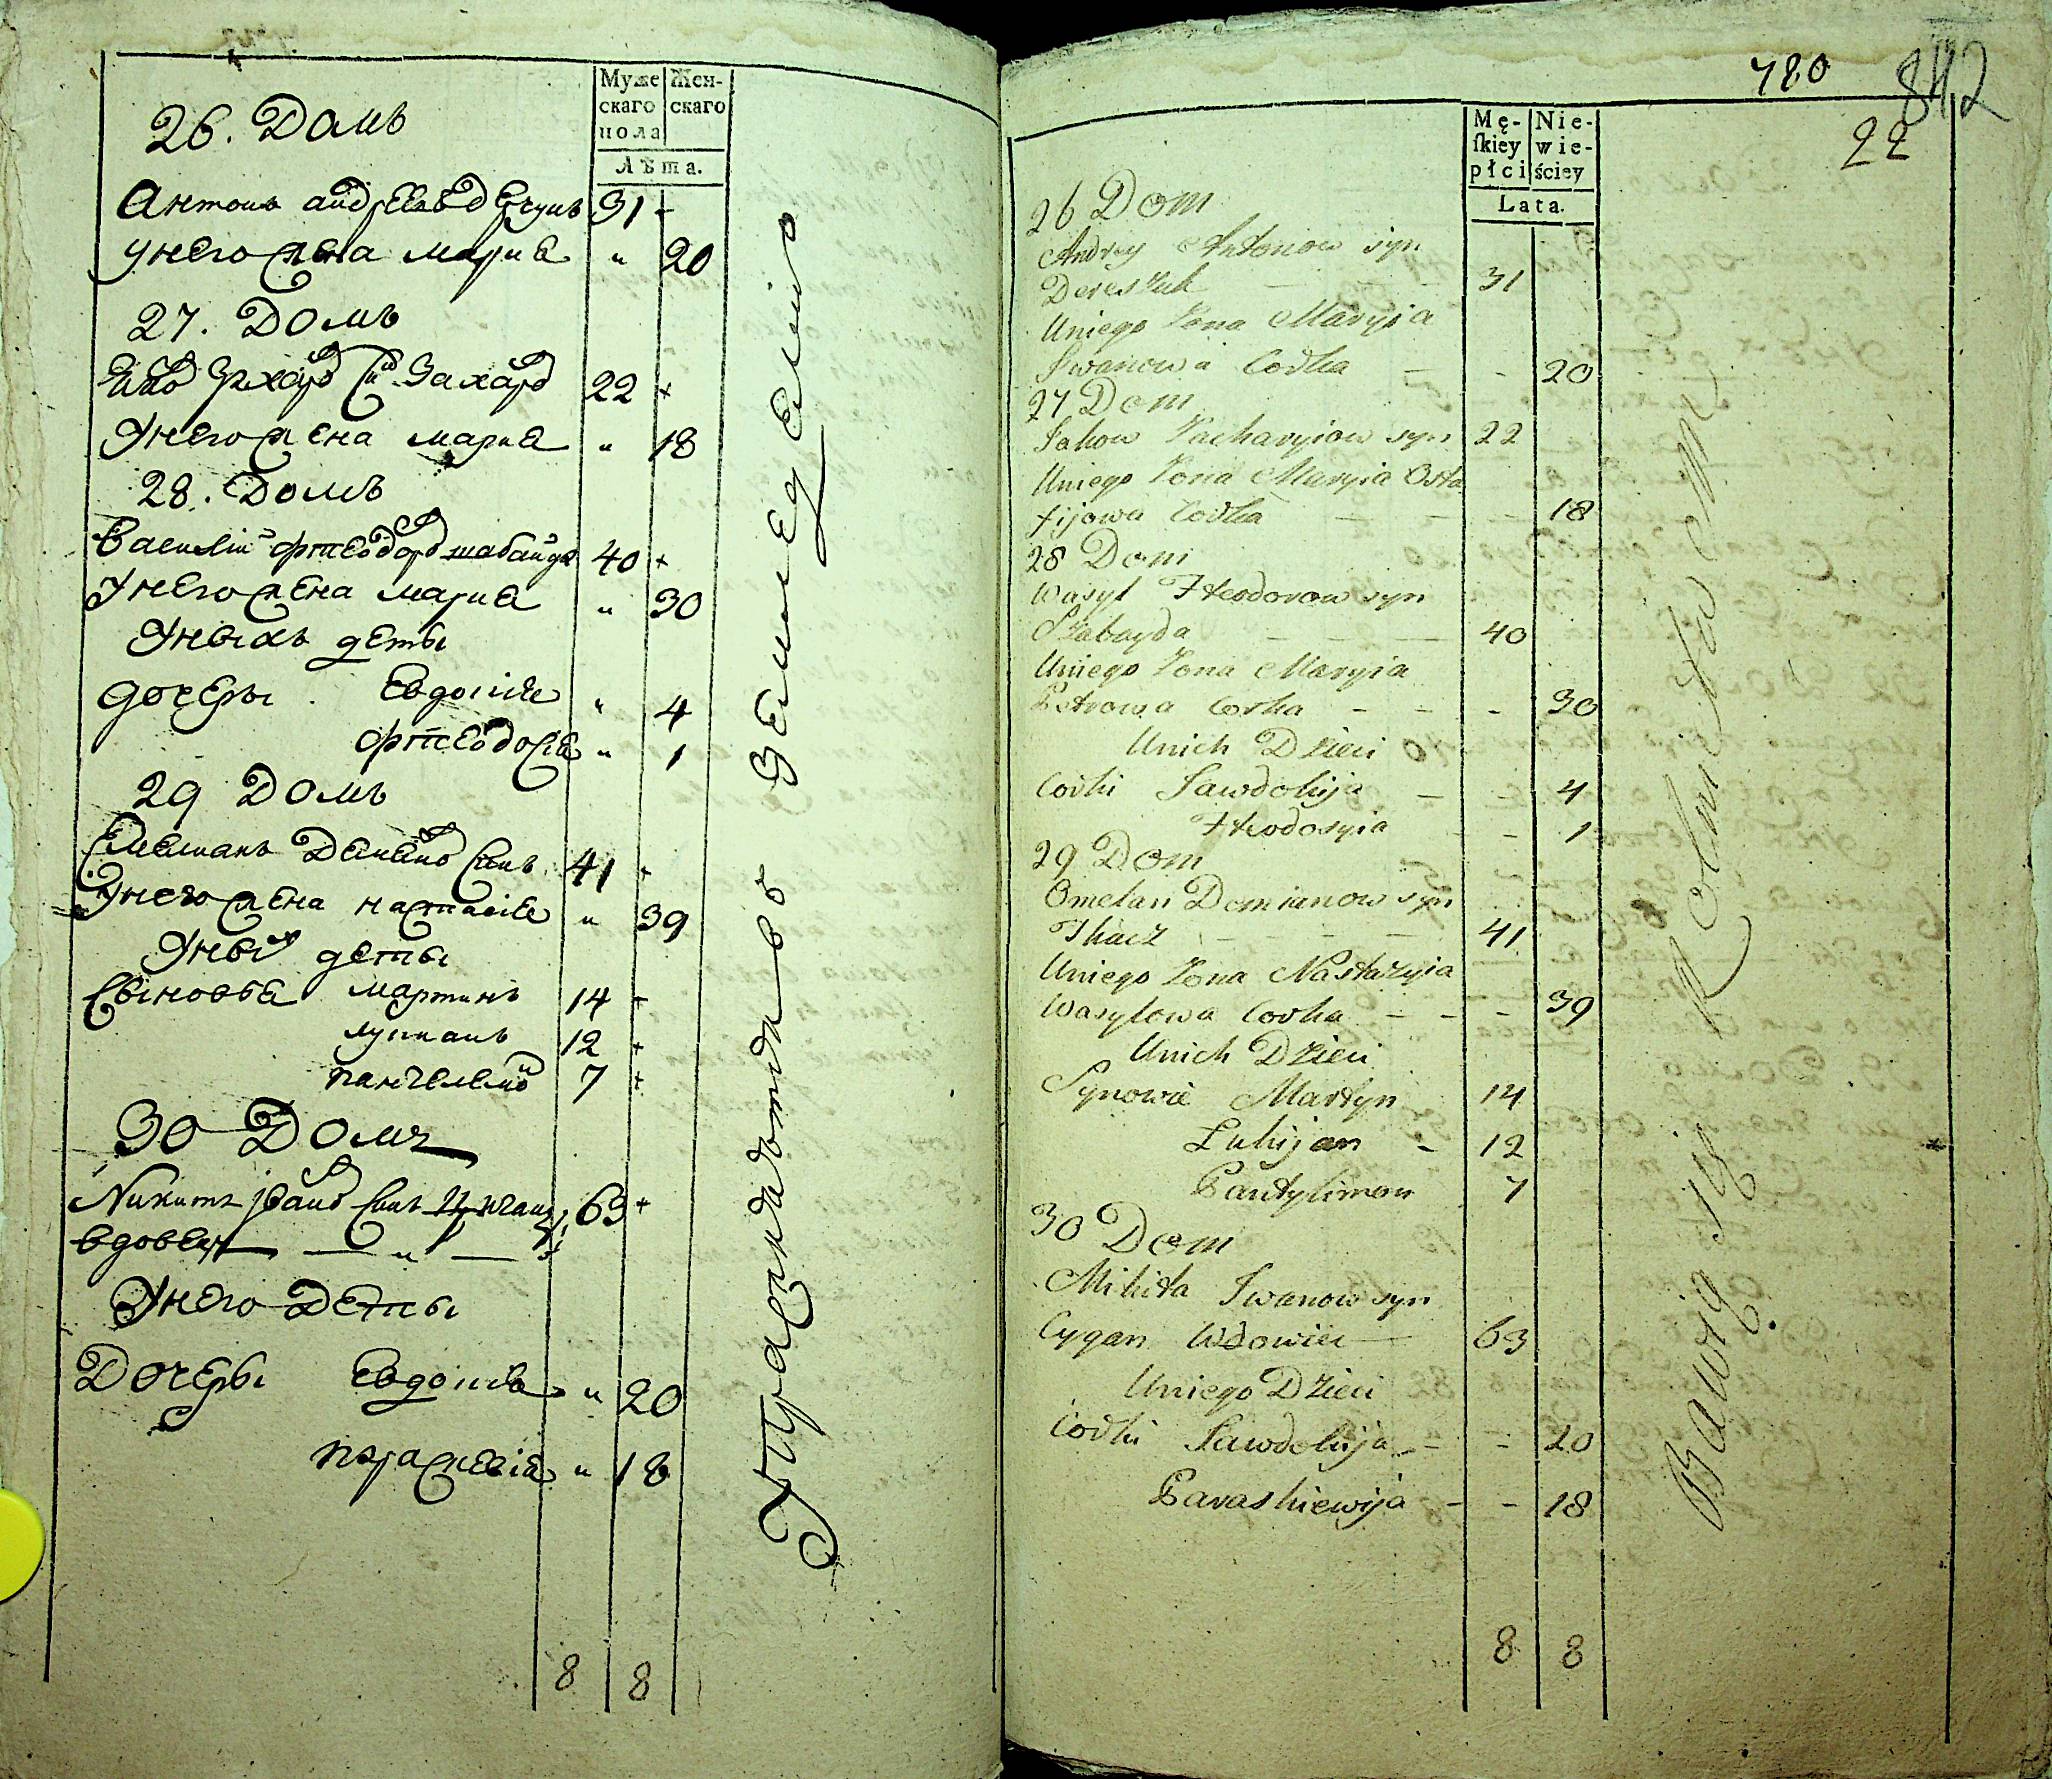 Муже
скаго
пола
Жен-
скаго
Лѣта.
26. Домъ
Антонъ андрее 31
унего жена мариа " 20
27. Домъ
Захаро 22
Унего жена мариа " 18
28. Домъ
Василій фтеодоро шабайда 40
Унего жена мариа " 30
Уныхъ деты
дочеры Евдокіа " 4
фтеодосіа " 1
29 Домъ
Емелианъ Демьяно Синъ 41
Унего жена настасіа " 39
Уныхъ деты
Сыновьа мартинъ 14
лукианъ 12
пантелемо 7
30 Домъ
Никита івано Синъ 63
вдовец — " —
Унего Деты
Дочеры Евдокіа " 20
параскевіа " 18
8 8
Упражнаютца во земледелию
780
842
22
Mę-
ſkiey
płci
Nie-
wie-
ściey
Lata.
26 Dom
Andrey Antonow syn
Dereszuk — — — 31
Uniego Zona Maryia
Iwanowa Corka — - 20
27 Dom
Jakow Zacharyiow syn 22
Uniego Zona Maryia Osta
fijowa Corka — — - 18
28 Dom
Wasyl Fteodorow syn
Szabayda — — — 40
Uniego Zona Maryia
Petrowa Corka — — - 30
Unich Dzieci
Corki Jawdokija — - 4
Fteodosyia - 1
29 Dom
Omelan Demianow syn
Tkacz — — — 41
Uniego Zona Nastazyia
Wasylowa Corka — — - 39
Unich Dzieci
Synowie Martyn 14
Lukijan - 12
Pantylimon 7
30 Dom
Mikita Iwanow syn
Cygan Wdowiec — 63
Uniego Dzieci
Corki Jawdokija — - 20
Paraskiewija — - 18
8 8
Bawią się Rolnictwem